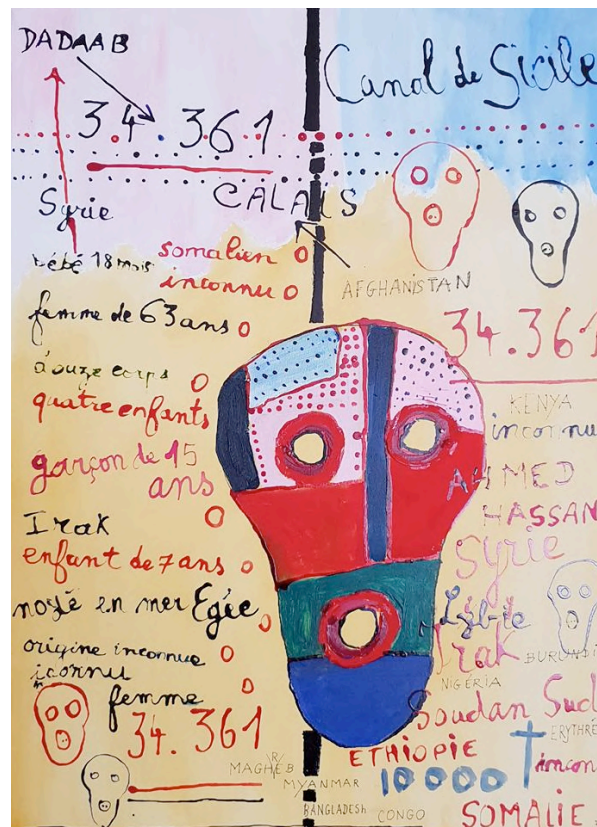 DADAAB
Canal de Sicile
34.361
Syrie
CALAIS
bébé 18 mois
somalien
inconnu
AFGHANISTAN
femme de 63 ans
34.361
douze corps
quatre enfants
KENYA
inconnu
garçon de 15
ans
AHMED
HASSAN
Syrie
Irak
enfant de 7 ans
noyé en mer Egée
Lybie
Irak
BURUNDI
origine inconnue
iconnu
NIGERIA
femme
Soudan Sud
34.361
ERYTHRÉ
ETHIOPIE
MAGHREB
MYANMAR
10000
BANGLADESH
CONGO
SOMALIE